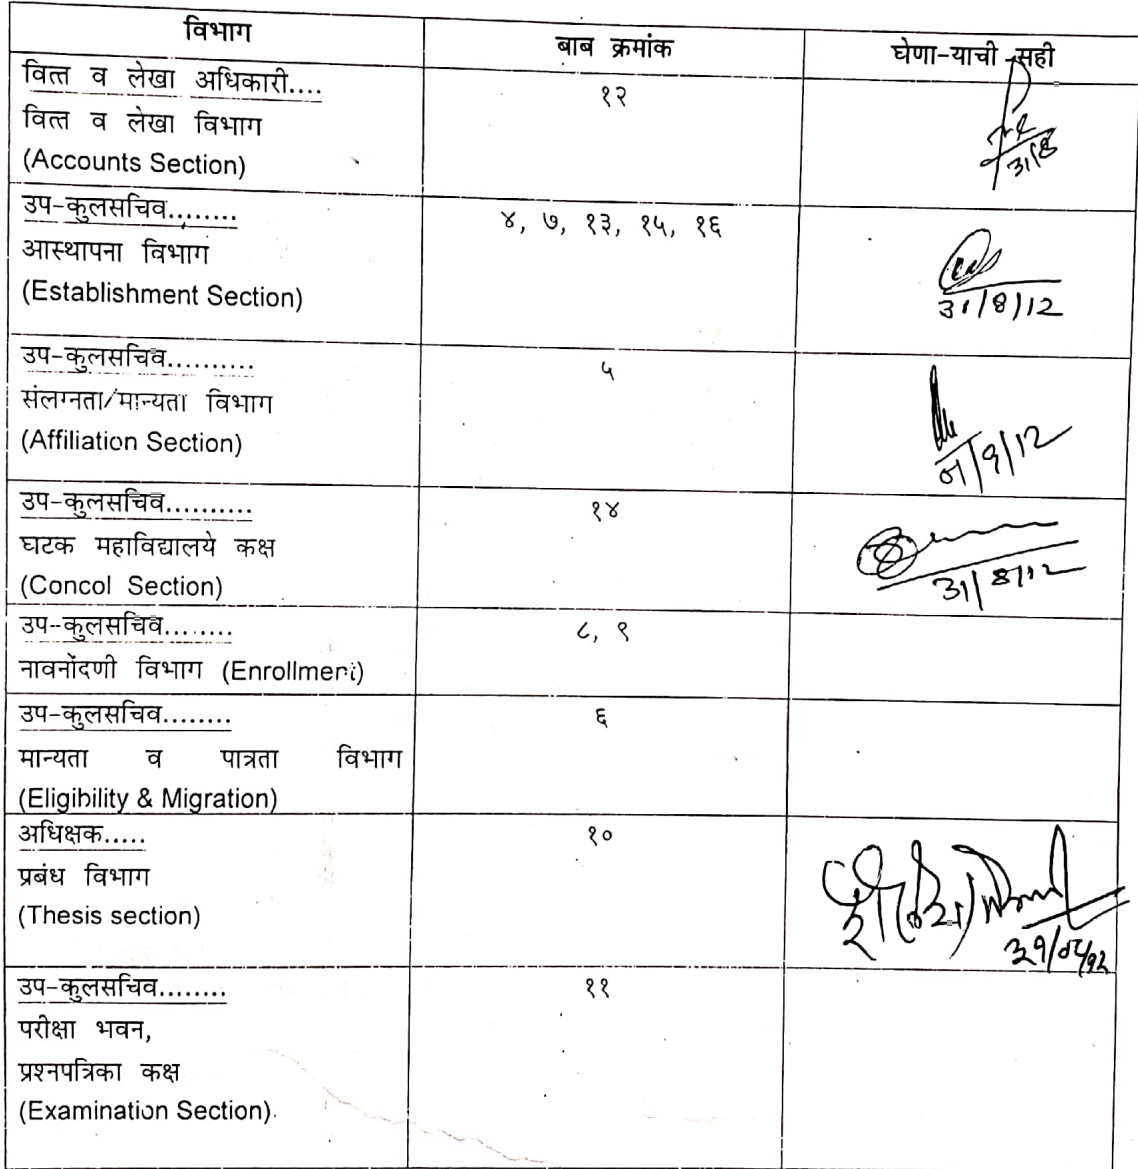 विभाग
बाब क्रमांक
घेणा-याची सही
वित्त व लेखा अधिकारी....
१२
वित्त व लेखा विभाग
(Accounts Section)
31/8
उप-कुलसचिव........
४, ७, १३, १५, १६
आस्थापना विभाग
(Establishment Section)
31/8/12
उप-कुलसचिव..........
५
संलग्नता/मान्यता विभाग
(Affiliation Section)
उप-कुलसचिव..........
१४
घटक महाविद्यालये कक्ष
(Concol Section)
31/8/12
उप-कुलसचिव........
८, ९
नावनोंदणी विभाग (Enrollment)
उप-कुलसचिव........
६
मान्यता व पात्रता विभाग
(Eligibility & Migration)
अधिक्षक.....
१०
प्रबंध विभाग
(Thesis section)
३१/०८/१२
उप-कुलसचिव........
११
परीक्षा भवन,
प्रश्नपत्रिका कक्ष
(Examination Section).